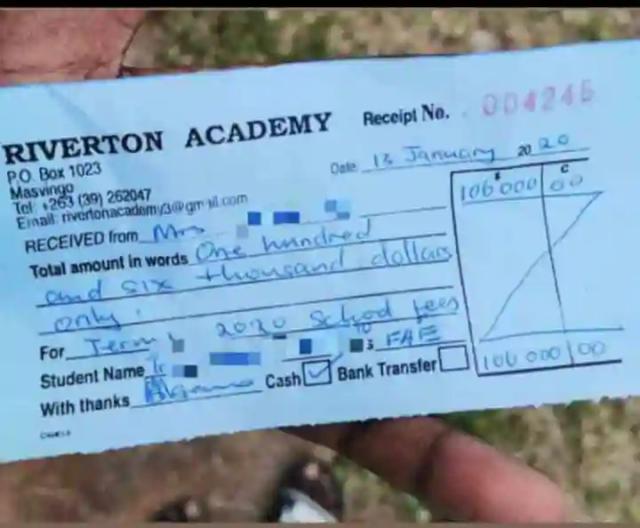 RIVERTON ACADEMY
Receipt No. 004246
P.O. Box 1023
Masvingo
Tel: +263 (39) 262047
Email: rivertonacademy3@gmail.com
Date 13 January 20 20
RECEIVED from Mrs
$ C
106 000 00
Total amount in words One hundred
and six thousand dollars
only.
For Term 2020 School fees
Student Name
With thanks
Cash ✓ Bank Transfer
106 000 00